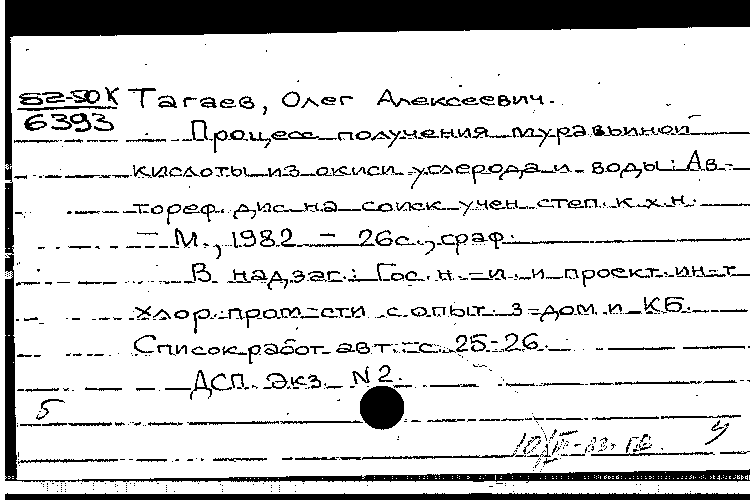 82-50К Тагаев, Олег Алексеевич.
6393
Процесс получения муравьиной
кислоты из окиси углерода и воды: Ав-
тореф. дис. на соиск. учен. степ. к.х.н.
– М., 1982 – 26с., граф.
В надзаг.: Гос. н.-и. и проект. ин-т
хлор. пром-сти с опыт. з-дом и КБ.
Список работ авт.: с. 25-26.
ДСП. Экз. N 2.
5